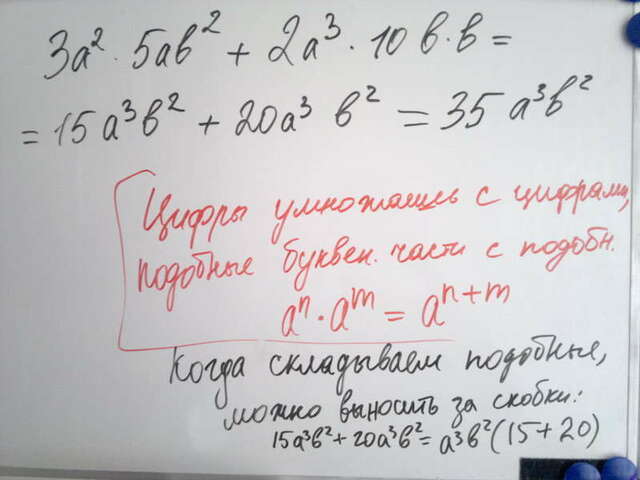 3a² · 5ab² + 2a³ · 10 b·b =
= 15a³b² + 20a³ b² = 35 a³b²
Цифры умножаешь с цифрами,
подобные буквен. части с подобн.
aⁿ · aᵐ = aⁿ⁺ᵐ
Когда складываем подобные,
можно выносить за скобки:
15a³b² + 20a³b² = a³b²(15 + 20)